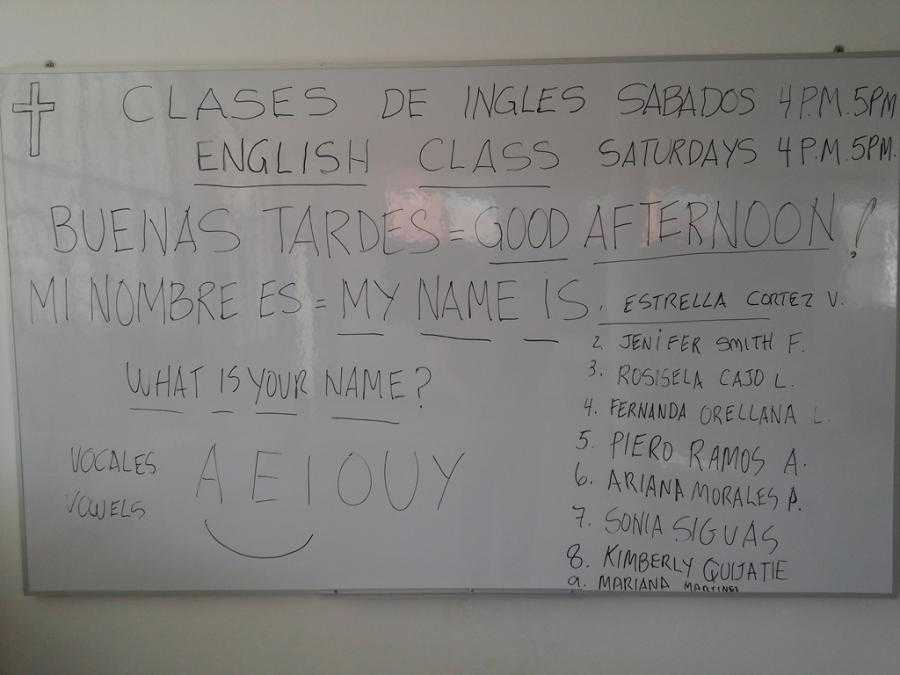 CLASES DE INGLES SABADOS 4 P.M. 5PM
ENGLISH CLASS SATURDAYS 4 P.M. 5PM.
BUENAS TARDES = GOOD AFTERNOON!
MI NOMBRE ES = MY NAME IS. ESTRELLA CORTEZ V.
2. JENIFER SMITH F.
3. ROSISELA CAJO L.
WHAT IS YOUR NAME?
4. FERNANDA ORELLANA L.
5. PIERO RAMOS A.
VOCALES
VOWELS
A E I O U Y
6. ARIANA MORALES P.
7. SONIA SIGUAS
8. KIMBERLY QUIJATIE
9. MARIANA MARTINEZ